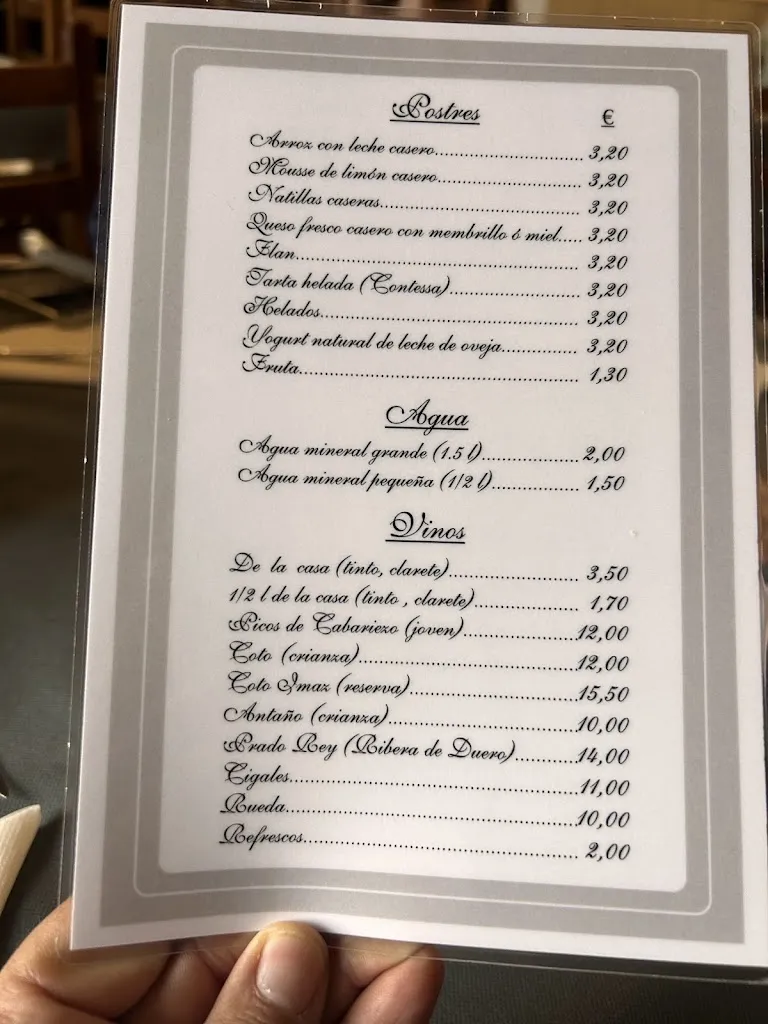 Postres €
Arroz con leche casero........................ 3,20
Mousse de limón casero........................ 3,20
Natillas caseras................................. 3,20
Queso fresco casero con membrillo ó miel..... 3,20
Flan............................................... 3,20
Tarta helada (Contessa)...................... 3,20
Helados........................................... 3,20
Yogurt natural de leche de oveja............. 3,20
Fruta.............................................. 1,30
Agua
Agua mineral grande (1.5 l)................. 2,00
Agua mineral pequeña (1/2 l)............... 1,50
Vinos
De la casa (tinto, clarete)...................... 3,50
1/2 l de la casa (tinto , clarete)................. 1,70
Picos de Cabariezo (joven)....................12,00
Coto (crianza)....................................12,00
Coto Imaz (reserva)............................15,50
Antaño (crianza)................................10,00
Prado Rey (Ribera de Duero)...........14,00
Cigales..............................................11,00
Rueda..............................................10,00
Refrescos........................................... 2,00